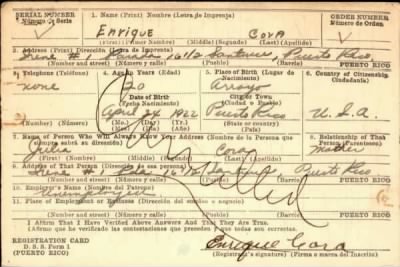 SERIAL NUMBER
Número de Serie
1. Name (Print) Nombre (Letra de Imprenta)
ORDER NUMBER
Número de Orden
Enrique Cora
(First) (Primer Nombre) (Middle) (Segundo) (Last) (Apellido)
2. Address (Print) Dirección (Letra de Imprenta)
Irene # 1 Parada 16 1/2 Santurce, Puerto Rico
(Number and street) (Número y calle) (Town) (Población) PUERTO RICO
3. Telephone (Teléfono)
4. Age in Years (Edad)
5. Place of Birth (Lugar de Nacimiento)
6. Country of Citizenship (Ciudadanía)
none
20
Arroyo
Date of Birth
(Fecha Nacimiento)
City or Town
(Ciudad o Pueblo)
April 24 1922
Puerto Rico
U.S.A.
(Number) (Número)
(Mo.) (Day) (Yr.)
(Mes) (Día) (Año)
(State or country)
(Estado o país)
7. Name of Person Who Will Always Know Your Address (Nombre de la Persona que siempre sabrá su dirección)
8. Relationship of That Person (Parentesco)
Julia Cora mother
(First) (Nombre) (Middle) (Segundo) (Last) (Apellido)
9. Address of That Person (Dirección de esa persona)
Irene # 1 Pda. 16 1/2 Santurce Puerto Rico
(Number and street) (Número y calle) (Town) (Población) PUERTO RICO
10. Employer's Name (Nombre del Patrono)
Unemployed
11. Place of Employment or Business (Dirección del empleo o negocio)
(Number and street) (Número y calle) (Town) (Población) PUERTO RICO
I Affirm That I Have Verified Above Answers And That They Are True.
(Afirmo que he verificado las contestaciones que preceden y que todas son correctas.)
REGISTRATION CARD
D. S. S. Form 1
(PUERTO RICO)
Enrique Cora
(Registrant's signature) (Firma o marca del Inscrito)
Cancelled